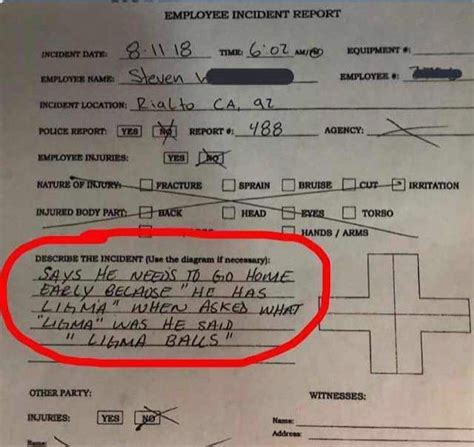 EMPLOYEE INCIDENT REPORT
INCIDENT DATE: 8-11-18 TIME: 6:02 AM/PM EQUIPMENT #:
EMPLOYEE NAME: Steven EMPLOYEE #:
INCIDENT LOCATION: Rialto CA, 92
POLICE REPORT: YES NO REPORT #: 488 AGENCY:
EMPLOYEE INJURIES: YES NO
NATURE OF INJURY: FRACTURE SPRAIN BRUISE CUT IRRITATION
INJURED BODY PART: BACK HEAD EYES TORSO
HANDS / ARMS
DESCRIBE THE INCIDENT (Use the diagram if necessary):
SAYS HE NEEDS TO GO HOME
EARLY BECAUSE "HE HAS
LIGMA" WHEN ASKED WHAT
"LIGMA" WAS HE SAID
"LIGMA BALLS"
OTHER PARTY:
WITNESSES:
INJURIES: YES NO
Name:
Address:
Name: